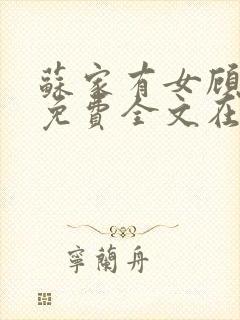 蘇家有女顾
免費全文在
寧蘭舟